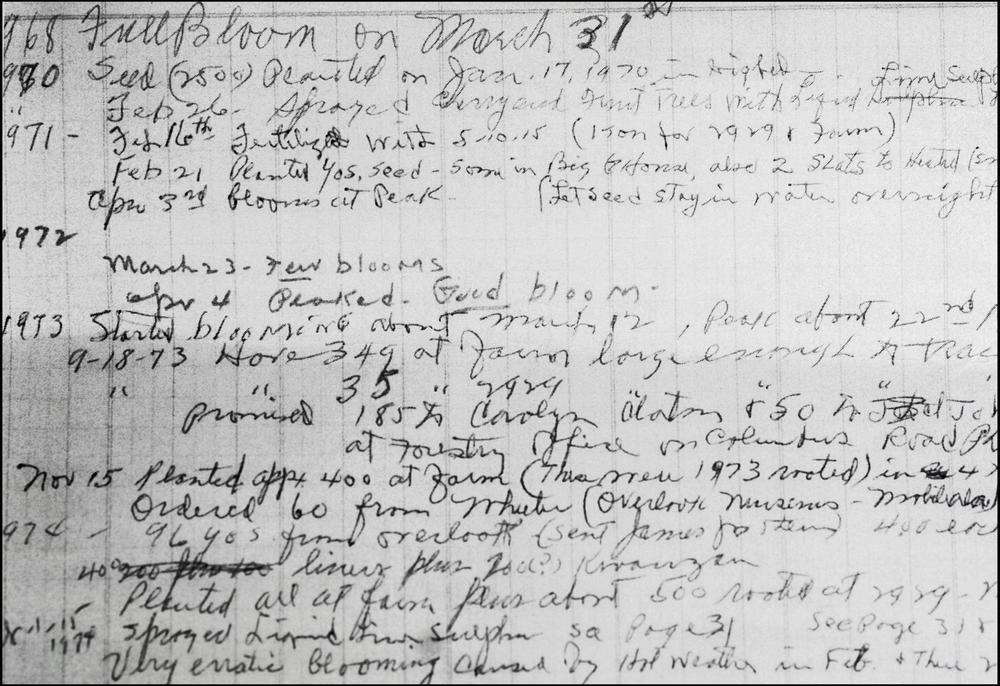 968 Full Bloom on March 31st
970 Seed (2500) Planted on Jan. 17, 1970 in Lime Sulph
" Feb 26 - Sprayed Cherry and Fruit Trees with Liquid
971 - Feb 16th Fertilized with 5-10-15 (1 Ton for 2929 & Farm)
Feb 21 Planted Yos. Seed - Some in Big G House, also 2 Slats to Heated
Apr 3rd blooms at Peak - (Let Seed stay in water overnight
1972
March 23 - Few blooms
Apr 4 Peaked - Good bloom -
1973 Started blooming about March 12, Peak about 22nd
9-18-73 Have 349 at Farm large enough to
" " 35 " 2929
Promised 185 to Carolyn & 50 to
at Forestry Office on Columbus Road
Nov 15 Planted app. 400 at Farm (These were 1973 rooted) in 4
Ordered 60 from (Overlook Nurseries - Mobile
974 - 96 Yos from Overlook (Sent James for them) 400
400 liners plus Kwanzan
- Planted all at farm plus about 500 rooted at 2929 -
1974 Sprayed Liquid Lime Sulphur Page 31 See Page 31
Very erratic blooming caused by Hot Weather in Feb. &